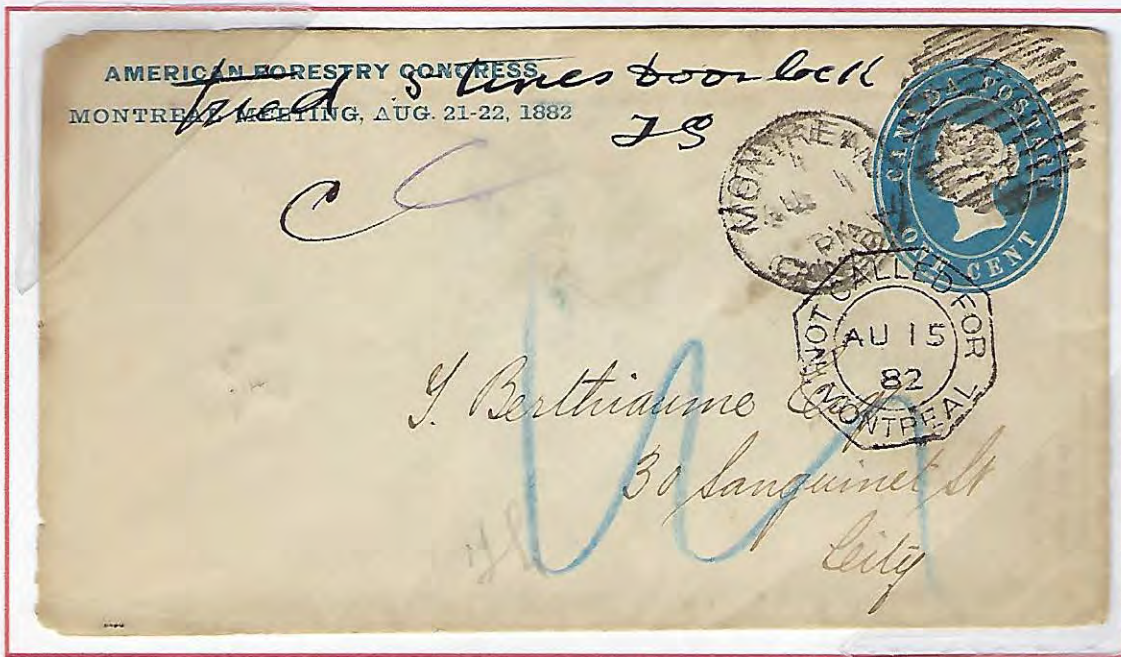 AMERICAN FORESTRY CONGRESS
MONTREAL MEETING, AUG. 21-22, 1882
Tried 5 times Door lock
C C
CANADA POSTAGE
ONE CENT
MONTREAL
CANADA
PM
NOT CALLED FOR
AU 15
82
MONTREAL
Berthiaume Esq
30 Sanguinet St
City